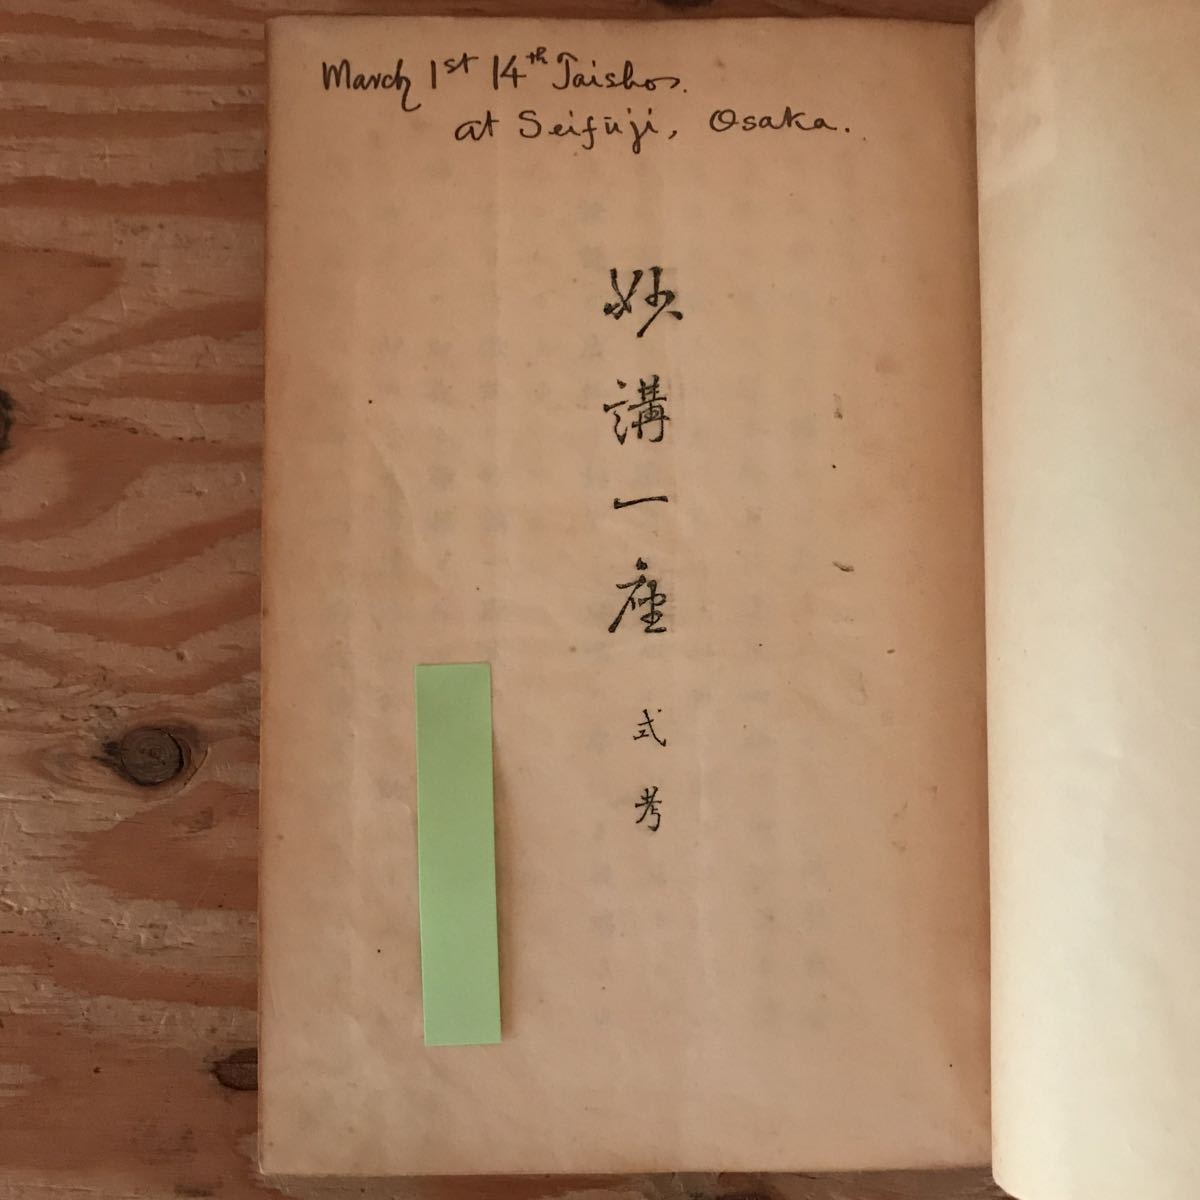 March 1st 14th Taisho.
at Seifūji, Osaka.
妙講一座 式考